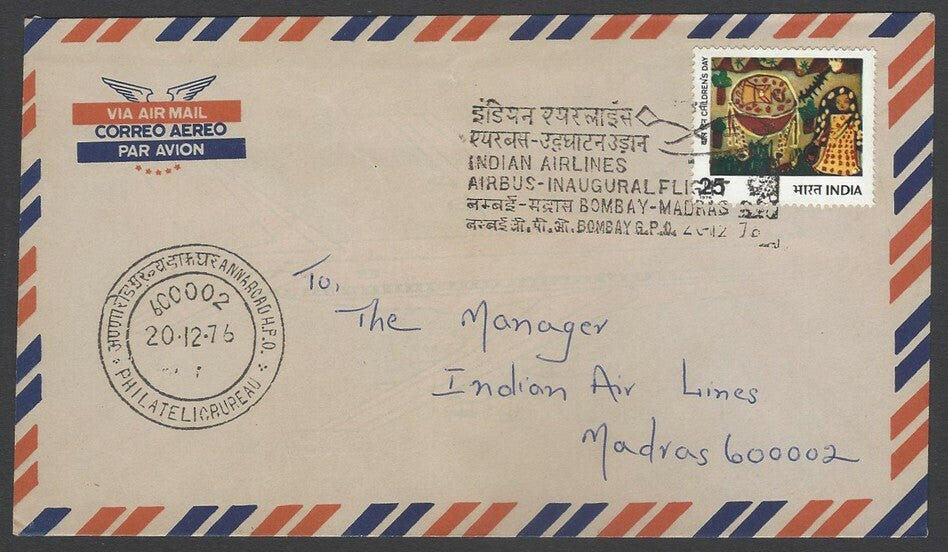 VIA AIR MAIL
CORREO AEREO
PAR AVION
इंडियन एयरलाईंस
एयरबस-उद्घाटन उड़ान
INDIAN AIRLINES
AIRBUS-INAUGURAL
बम्बई-मद्रास BOMBAY-MADRAS
बम्बई जी.पी.ओ. BOMBAY G.P.O.
बाल दिन CHILDREN'S DAY
25
भारत INDIA
ANNAROAD H.P.O.
600002
20·12·76
To,
The Manager
Indian Air Lines
Madras 600002